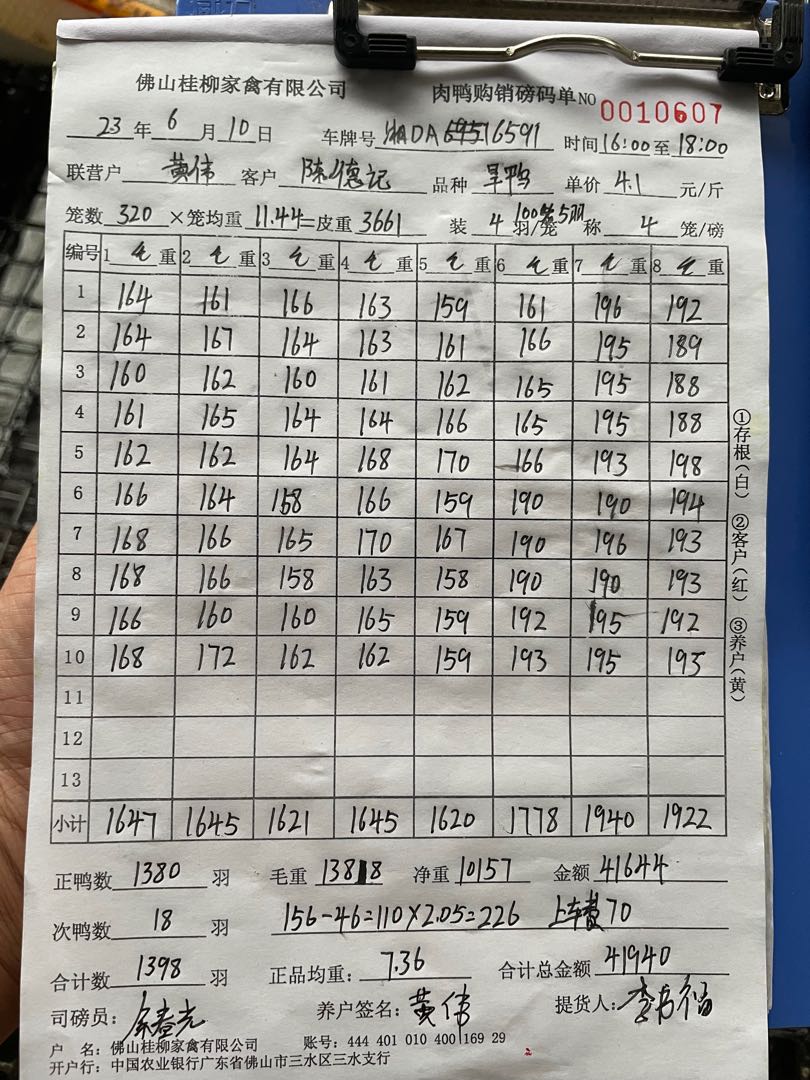 佛山桂柳家禽有限公司 肉鸭购销磅码单NO 0010607
23年6月10日 车牌号 湘DA69516591 时间16:00至18:00
联营户 黄伟 客户 陈德记 品种 旱鸭 单价 4.1 元/斤
笼数 320 ×笼均重 11.44=皮重 3661 装 4 羽/笼 100笼5羽 称 4 笼/磅
编号 1毛重 2毛重 3毛重 4毛重 5毛重 6毛重 7毛重 8毛重
1 164 161 166 163 159 161 196 192
2 164 167 164 163 161 166 195 189
3 160 162 160 161 162 165 195 188
4 161 165 164 164 166 165 195 188
5 162 162 164 168 170 166 193 198
6 166 164 158 166 159 190 190 194
7 168 166 165 170 167 190 196 193
8 168 166 158 163 158 190 190 193
9 166 160 160 165 159 192 195 192
10 168 172 162 162 159 193 195 195
11
12
13
小计 1647 1645 1621 1645 1620 1778 1940 1922
正鸭数 1380 羽 毛重 13818 净重 10157 金额 41644
次鸭数 18 羽 156-46=110×2.05=226 上车费70
合计数 1398 羽 正品均重: 7.36 合计总金额 41940
司磅员: 养户签名: 黄伟 提货人:
户 名: 佛山桂柳家禽有限公司 账号: 444 401 010 400 169 29
开户行: 中国农业银行广东省佛山市三水区三水支行
2
①存根(白) ②客户(红) ③养户(黄)